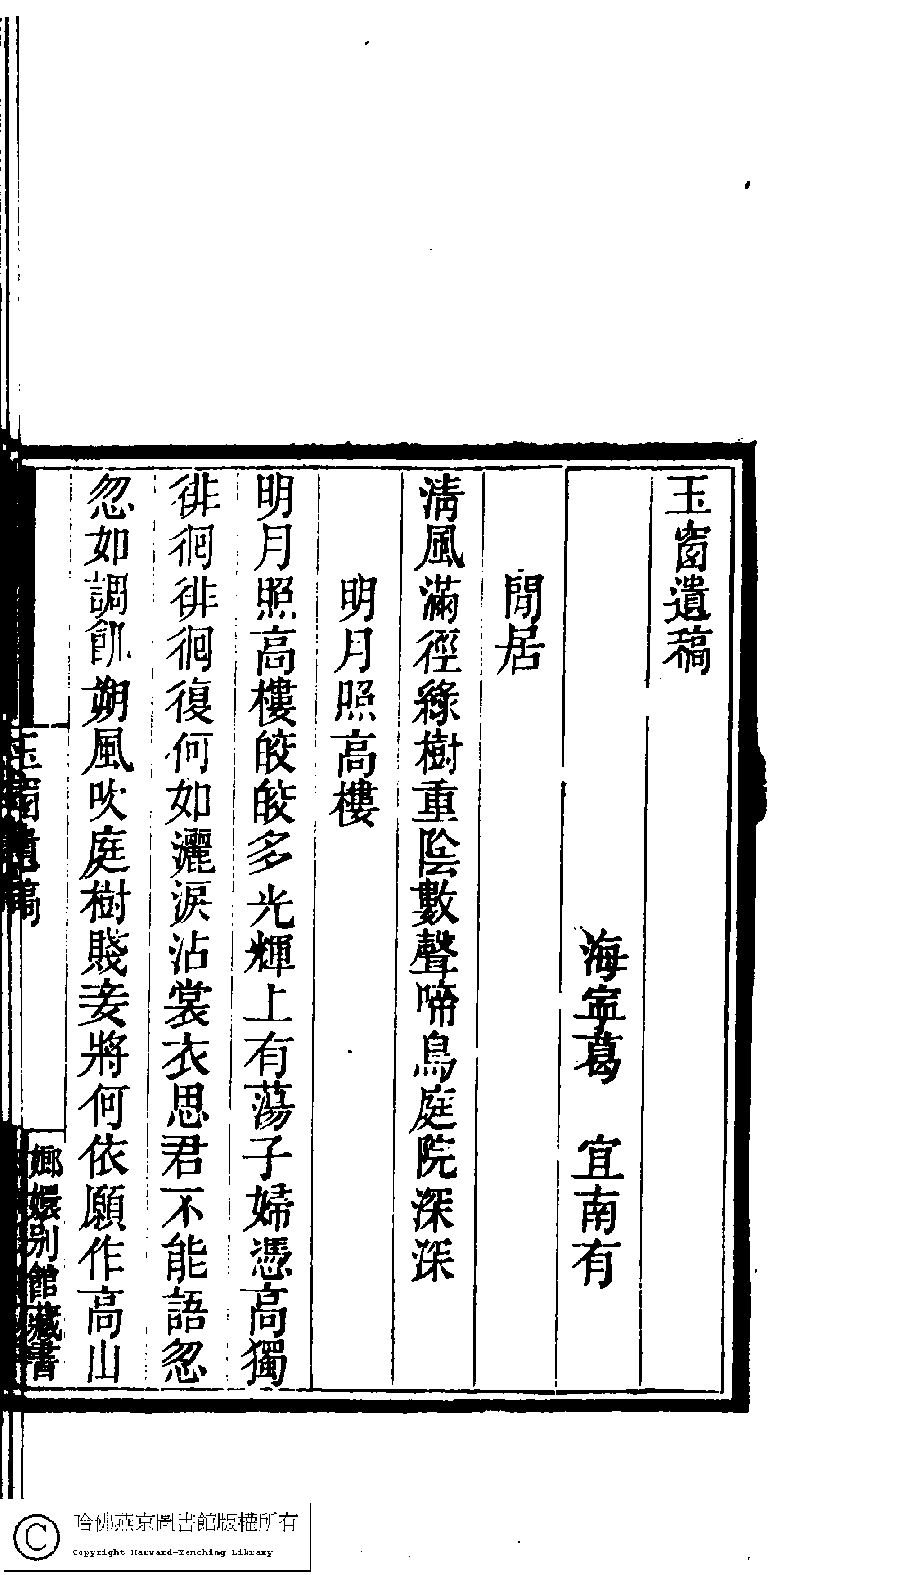 玉窗遺稿
海寧葛　宜南有
閒居
淸風滿徑綠樹重陰數聲啼鳥庭院深深
明月照高樓
明月照高樓皎皎多光輝上有蕩子婦憑高獨
徘徊徘徊復何如灑淚沾裳衣思君不能語忽
忽如調飢朔風吹庭樹賤妾將何依願作高山
玉窗遺稿
嫏嬛別館藏書
哈佛燕京圖書館版權所有
Copyright Harvard-Yenching Library